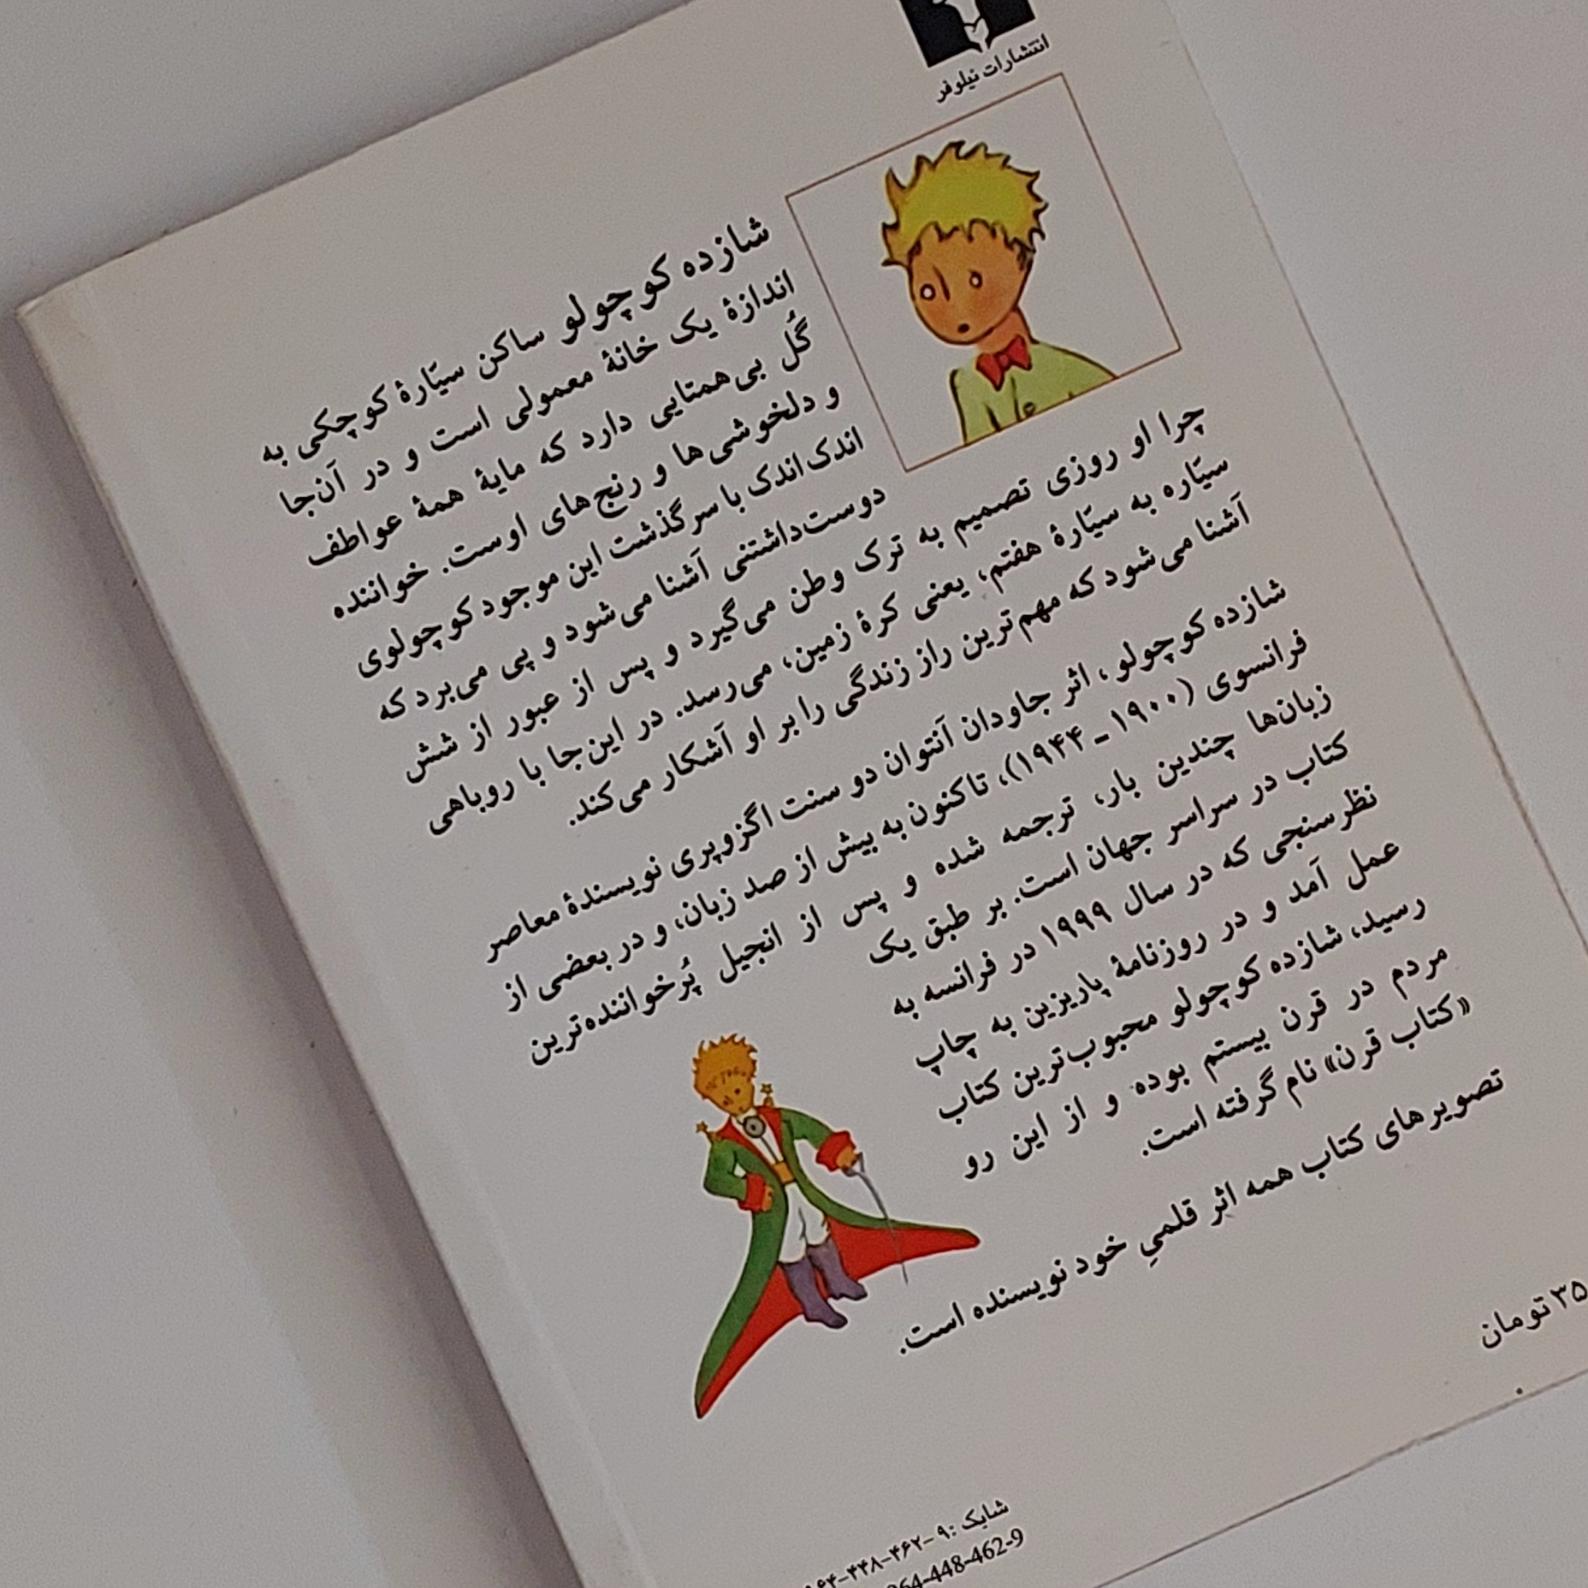 انتشارات نیلوفر
شازده کوچولو ساکن سیّارهٔ کوچکی به
اندازهٔ یک خانهٔ معمولی است و در آن‌جا
گُل بی‌همتایی دارد که مایهٔ همهٔ عواطف
و دلخوشی‌ها و رنج‌های اوست. خواننده
اندک‌اندک با سرگذشت این موجود کوچولوی
دوست‌داشتنی آشنا می‌شود و پی می‌برد که
چرا او روزی تصمیم به ترک وطن می‌گیرد و پس از عبور از شش
سیّاره به سیّارهٔ هفتم، یعنی کرهٔ زمین، می‌رسد. در این‌جا با روباهی
آشنا می‌شود که مهم‌ترین راز زندگی را بر او آشکار می‌کند.
شازده کوچولو، اثر جاودان آنتوان دو سنت اگزوپری نویسندهٔ معاصر
فرانسوی (۱۹۰۰ ـ ۱۹۴۴)، تاکنون به بیش از صد زبان، و در بعضی از
زبان‌ها چندین بار، ترجمه شده و پس از انجیل پُرخواننده‌ترین
کتاب در سراسر جهان است. بر طبق یک
نظرسنجی که در سال ۱۹۹۹ در فرانسه به
عمل آمد و در روزنامهٔ پاریزین به چاپ
رسید، شازده کوچولو محبوب‌ترین کتاب
مردم در قرن بیستم بوده و از این رو
«کتاب قرن» نام گرفته است.
تصویرهای کتاب همه اثر قلمیِ خود نویسنده است.
۳۵ تومان
شابک: ۹-۴۶۲-۴۴۸-۹۶۴
964-448-462-9